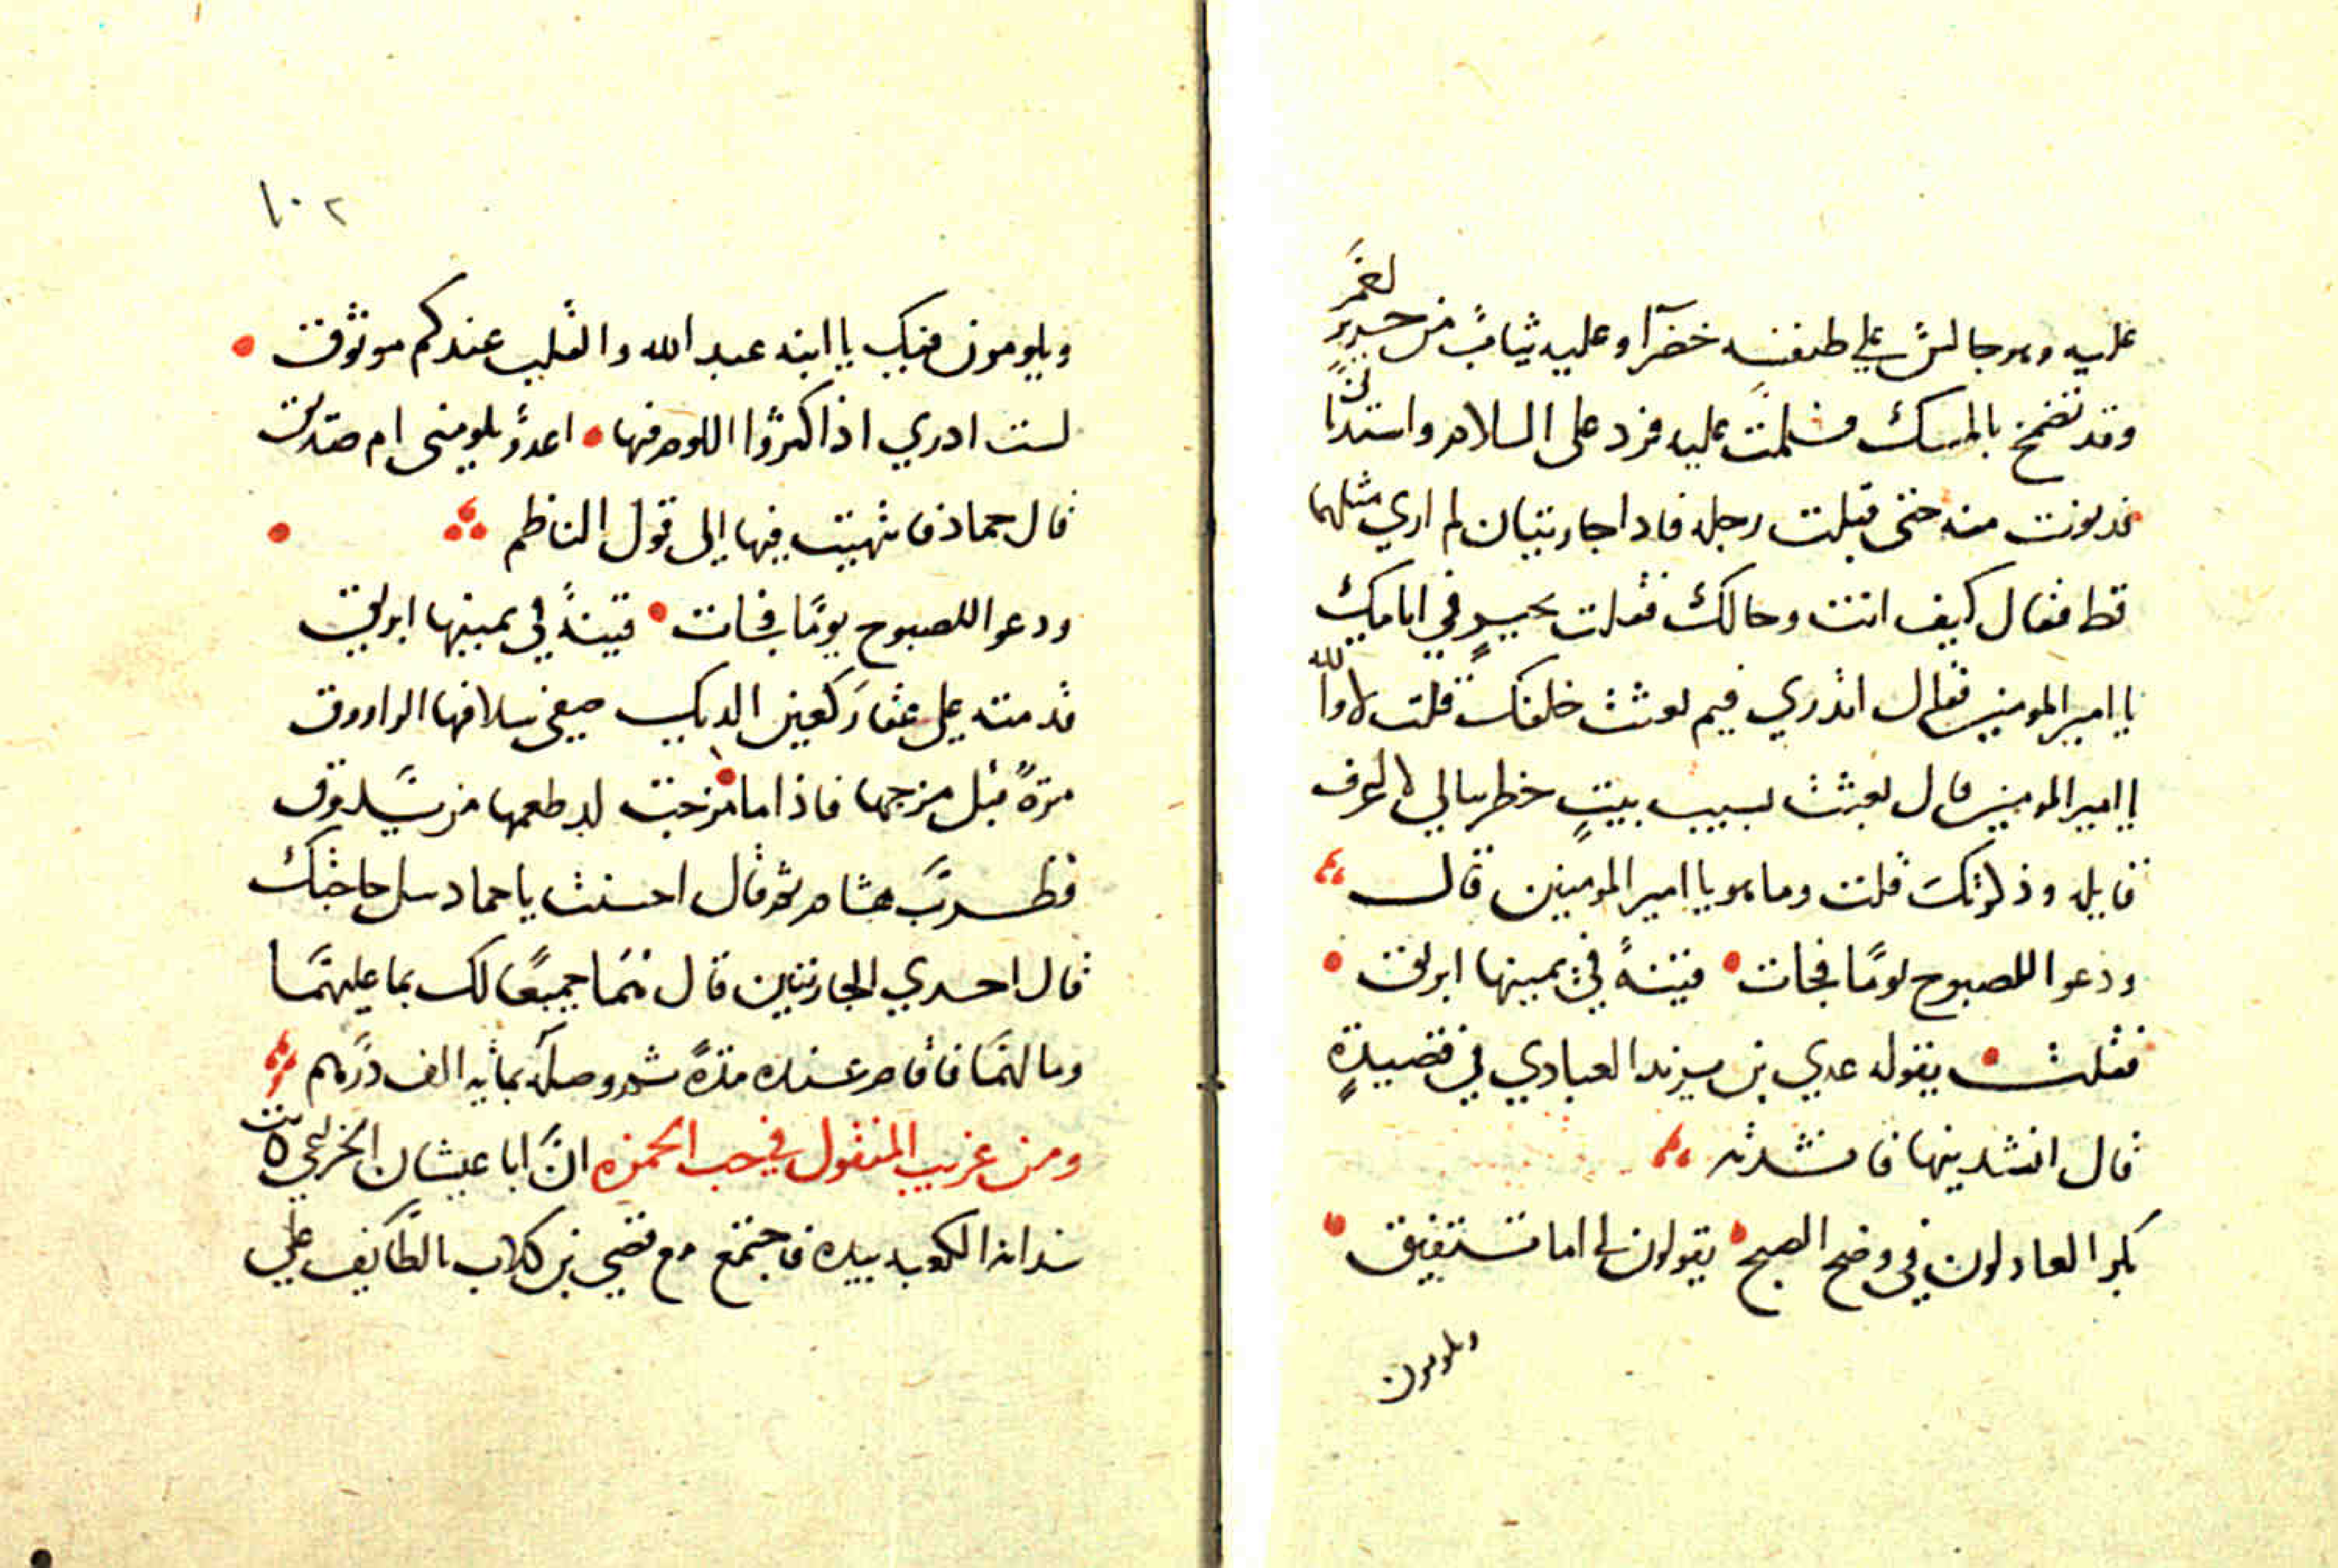 عليه وهو جالسٌ علي طنفسه خضرآ وعليه ثيابٌ من حريرٍ احمر
وقد تضمخ بالمسك فسلمت عليه فرد على السلام واستدنانى
فدنوت منه حتى قبلت رجله فاذا جاريتيان لم اري مثلهما
قط فقال كيف انت وحالك فقلت بخيرٍ في ايامك
يا امير المومنين فقال اتدري فيم بعثت خلفك قلت لا والله
يا امير المومنين قال بعثت بسبب بيتٍ خطر ببالي لا اعرف
قايله وذكرتك قلت وما هو يا امير المومنين قال
ودعوا للصبوح يومًا فجات • قينةً في يمينها ابريق •
فقلت • يقوله عدي بن يزيد العبادي في قصيدةٍ
قال انشدنيها فانشدته
بكر العاذلون في وضح الصبح • يقولون لى اما تستفيق •
ويلومون
١٠٢
ويلومون فيك يا ابنه عبد الله والقلب عندكم موثوق •
لست ادري اذا اكثروا اللوم فيها • اعدوٌ يلومنى ام صديق
قال حماد فانتهيت فيها إلى قول الناظم
ودعوا للصبوح يومًا فجات • قينةً في يمينها ابريق
قدمته على عقار كعين الديك صفى سلافها الراووق
مزةٌ قبل مزجها فاذا ما • مزجت لذ طعمها من يذوق
فطرب هشام ثم قال احسنت يا حماد سل حاجتك
قال احدي الجاريتين قال هما جميعًا لك بما عليهما
وما لهما فاقام عنده مدةً ثم وصله بمايه الف درهم
ومن غريب المنقول في حب الخمره انَّ ابا غبشان الخزاعي كانت
سدانه الكعبه بيده فاجتمع مع قصي بن كلاب بالطايف علي